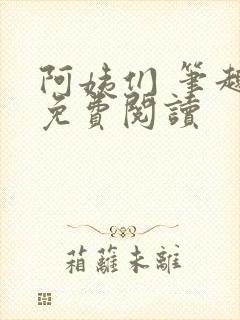 阿姨们 筆趣
免費閱讀
箱蘺未離